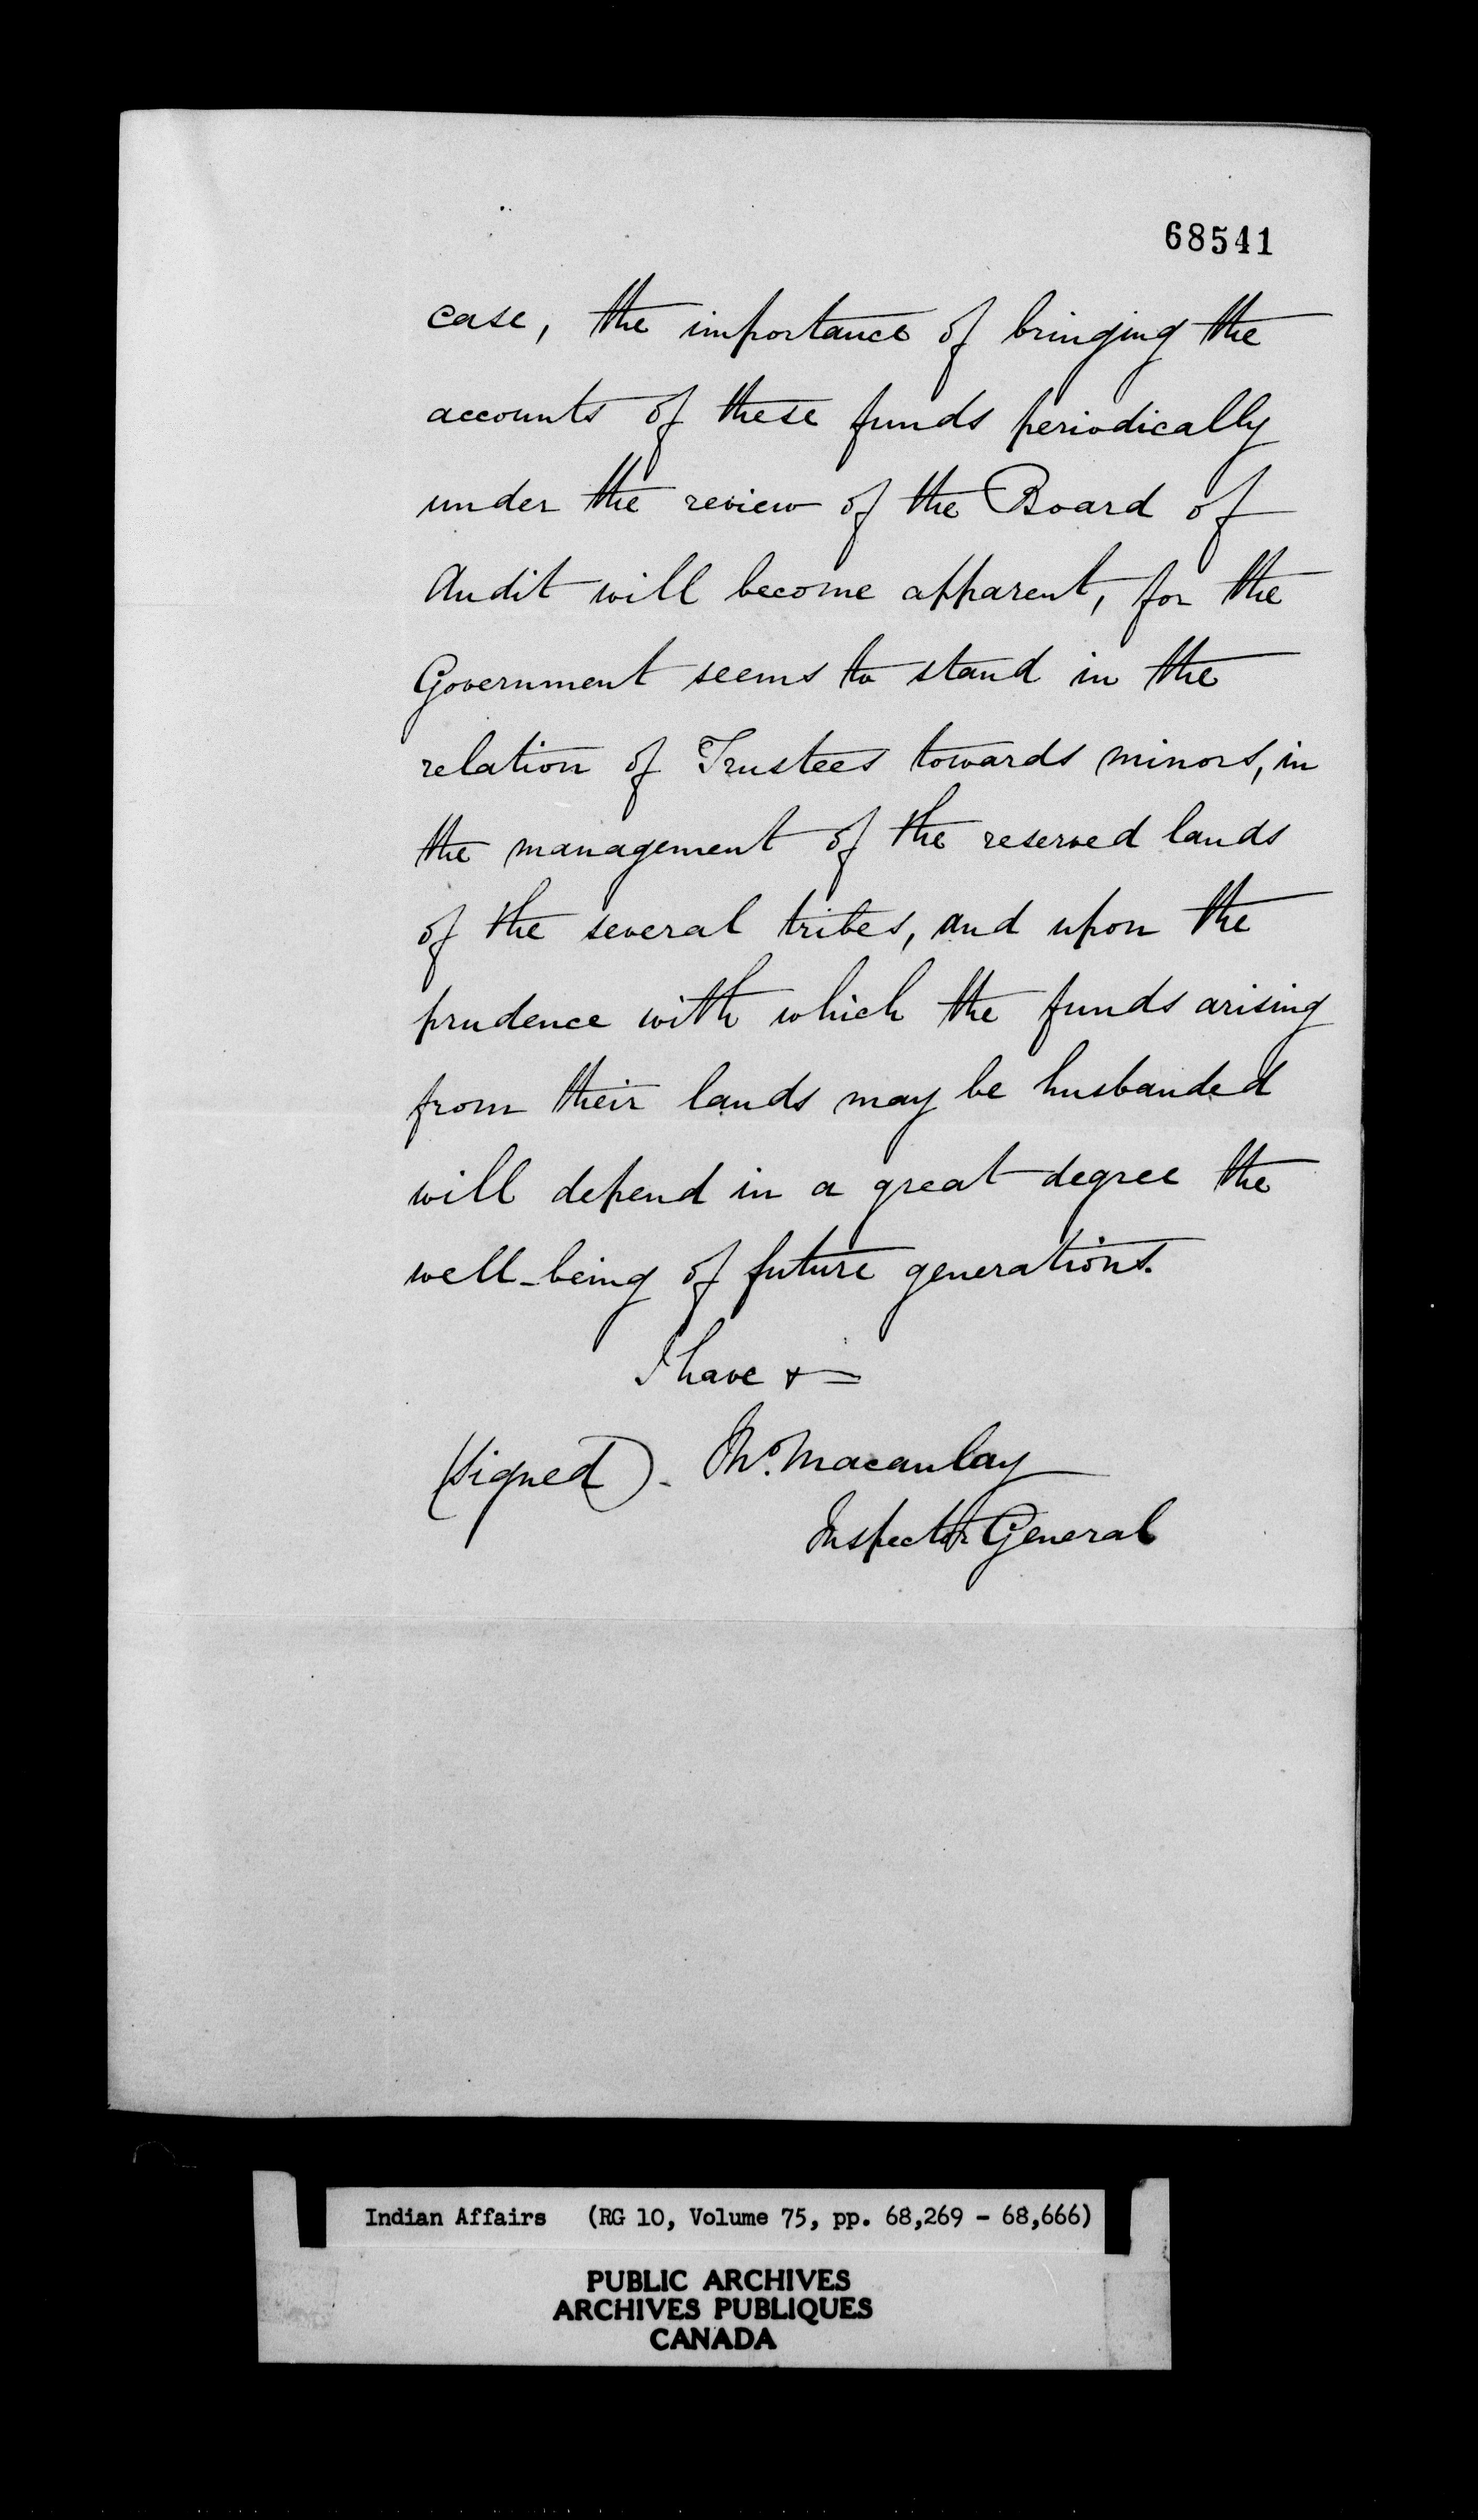 68541
case, the importance of bringing the
accounts of these funds periodically
under the review of the Board of
Audit will become apparent, for the
Government seems to stand in the
relation of Trustees towards minors, in
the management of the reserved lands
of the several tribes, and upon the
prudence with which the funds arising
from their lands may be husbanded
will depend in a great degree the
well-being of future generations.
I have & =
(signed). Jno. Macaulay
Inspector General
Indian Affairs (RG 10, Volume 75, pp. 68,269 - 68,666)
PUBLIC ARCHIVES
ARCHIVES PUBLIQUES
CANADA